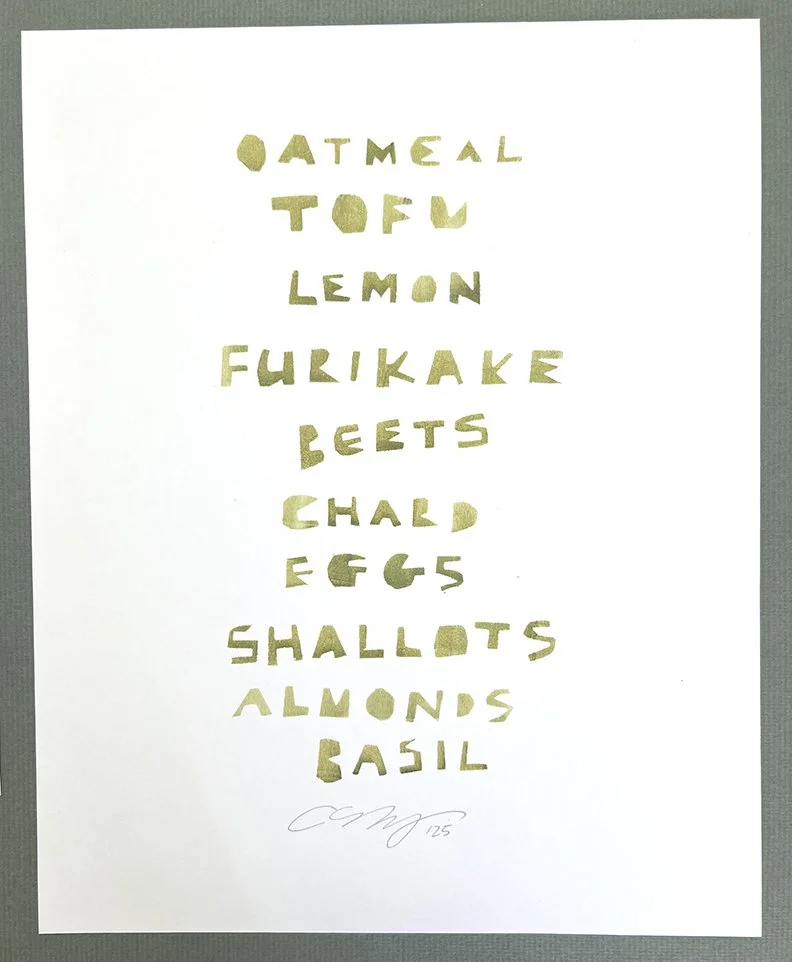 OATMEAL
TOFU
LEMON
FURIKAKE
BEETS
CHARD
EGGS
SHALLOTS
ALMONDS
BASIL
'25